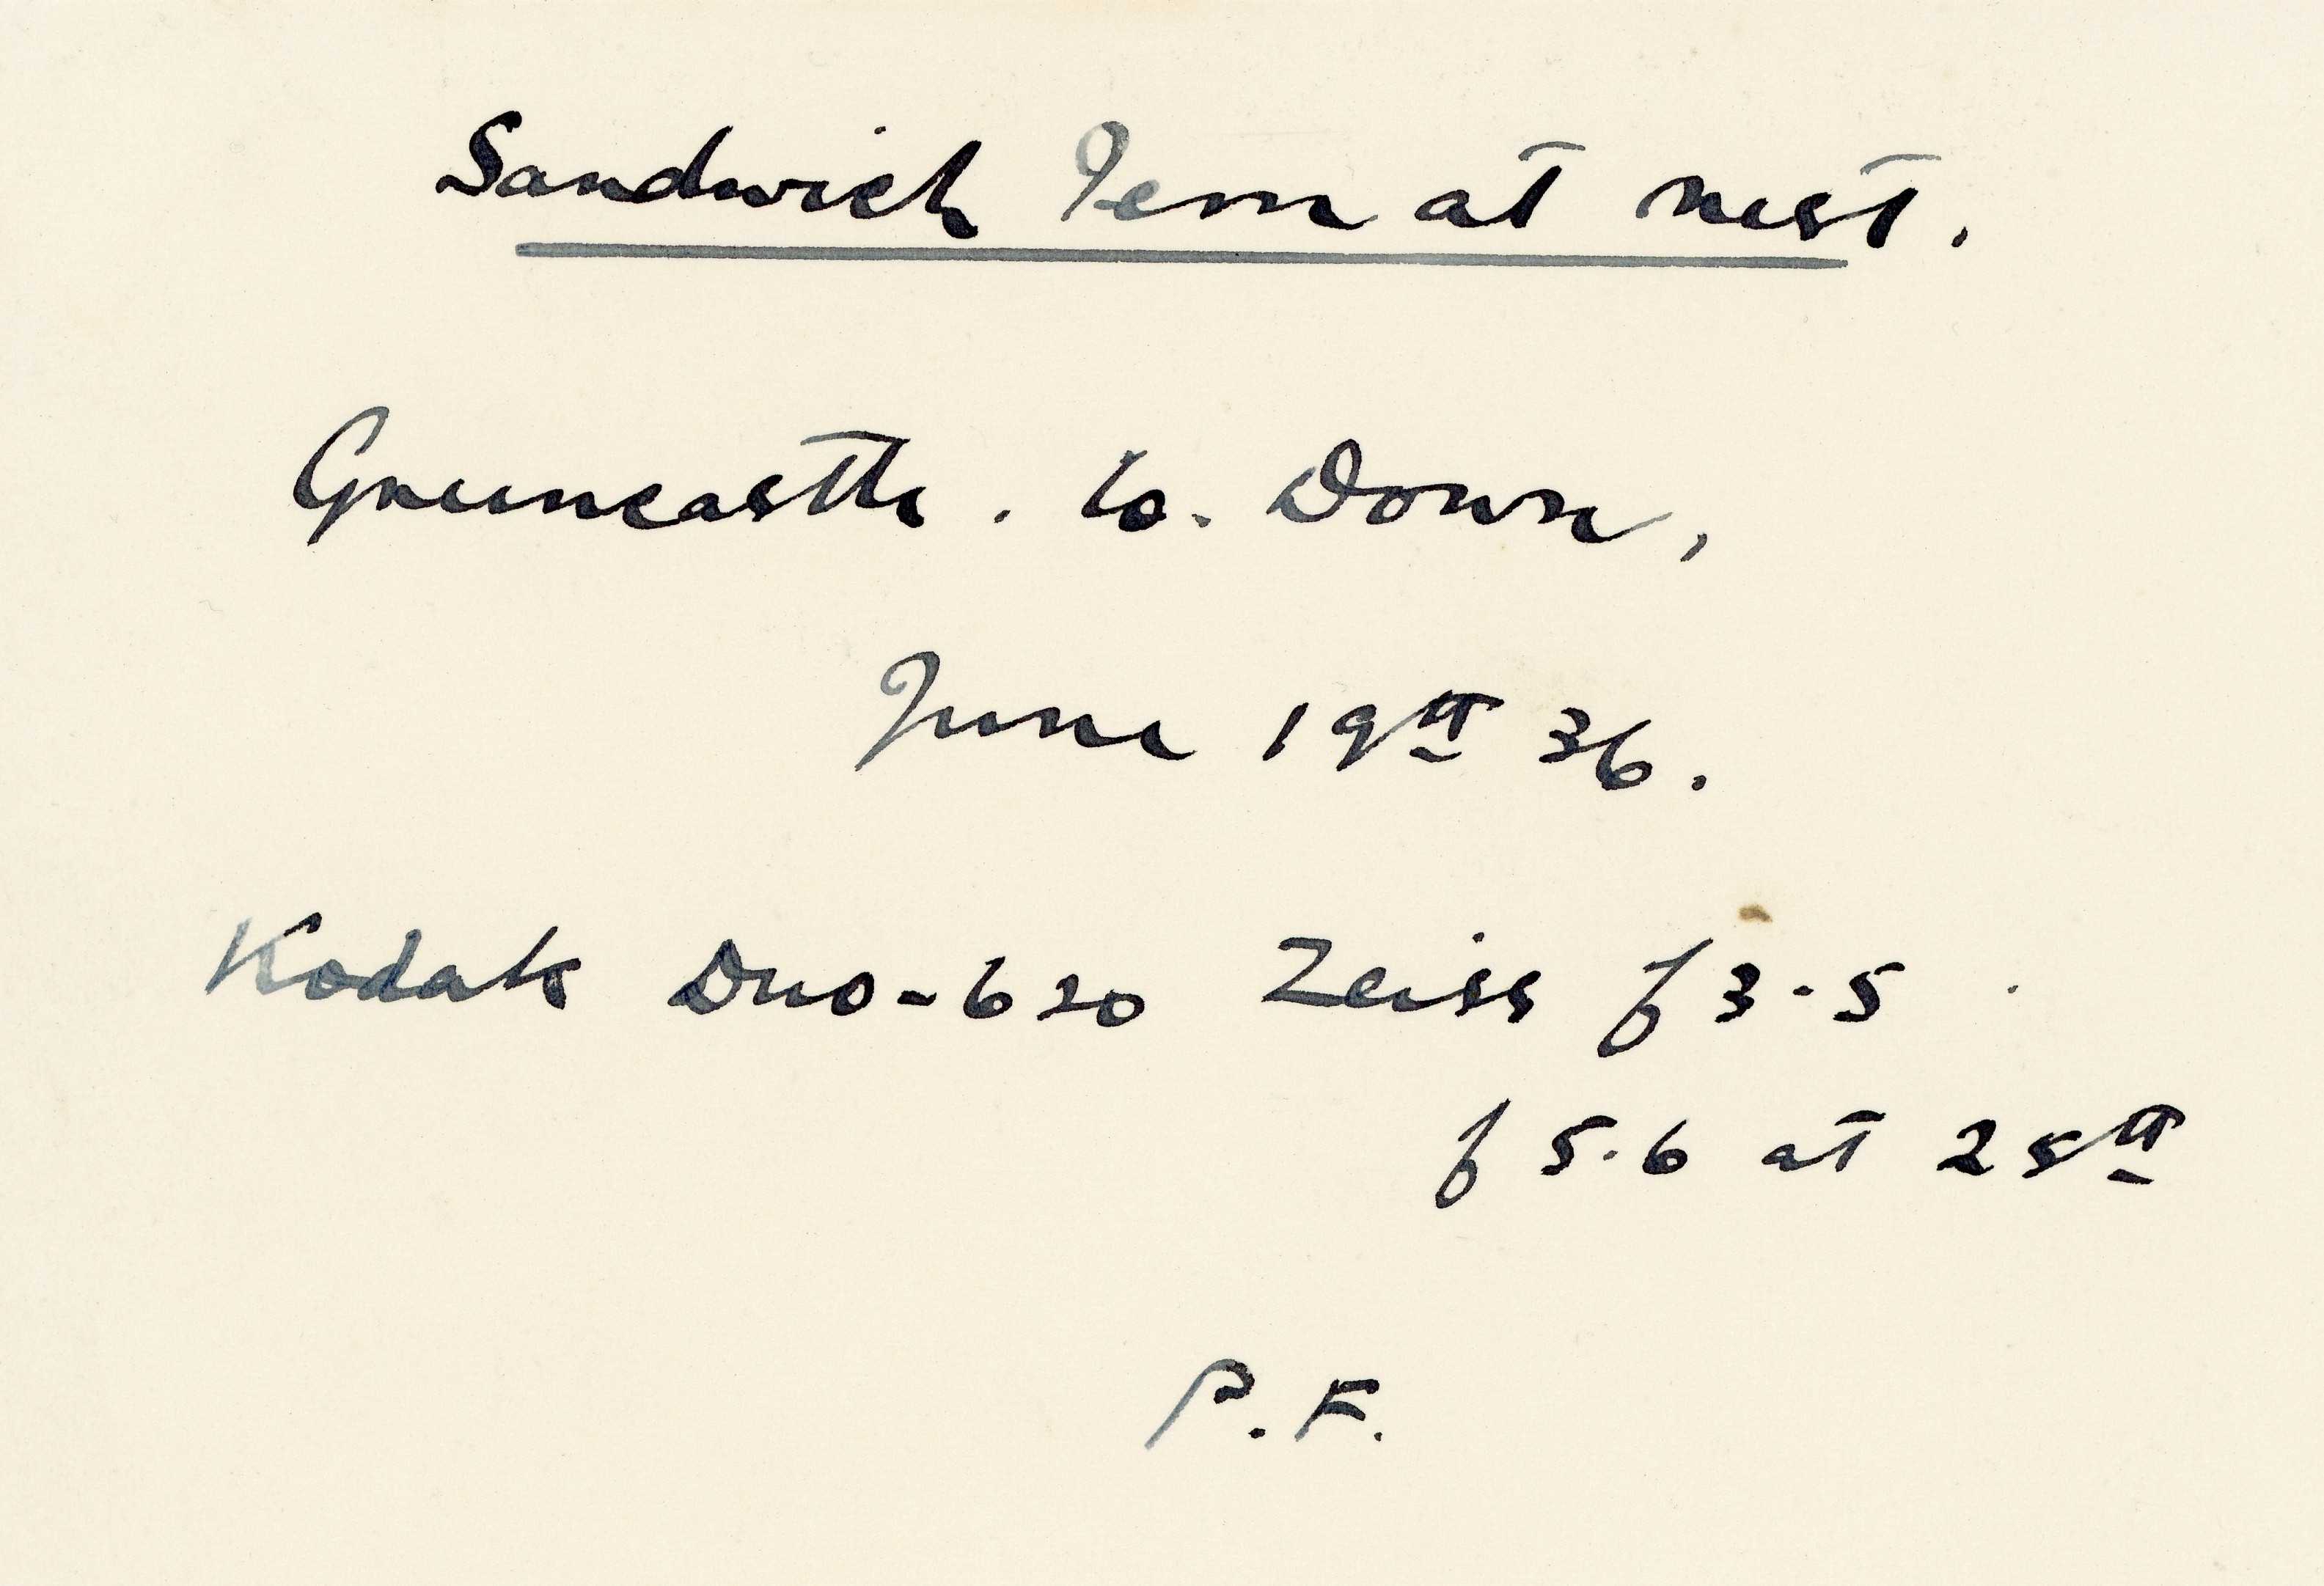 Sandwich Tern at nest.
Greencastle. Co. Down,
June 19th 36.
Kodak Duo-620 Zeiss f 3.5
f 5.6 at 25th
P. F.